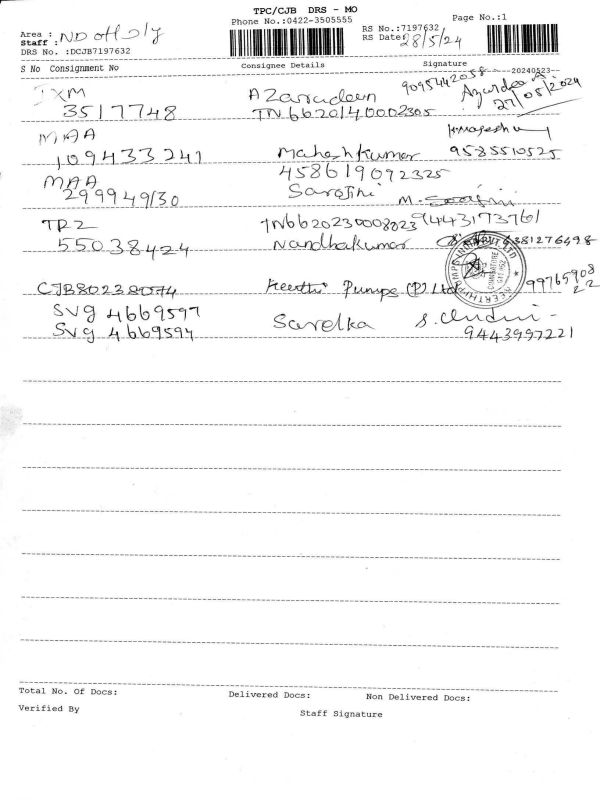 TPC/CJB DRS - MO
Phone No.:0422-3505555
Page No.:1
Area :
Staff :
RS No.:7197632
RS Date: 28/5/24
DRS No. :DCJB7197632
S No Consignment No
Consignee Details
Signature
20240523
JXM
3517748
Azarudeen
TN6620140002305
9095442058
Azarudeen
27/05/2024
MAA
109433241
Maheshkumar
9585510525
MAA
299949130
458619092325
Sarojini
M. Sarojini
TRZ
55038424
TN6620230008023
9443173761
Nandhakumar
6381276498
CJB80238074
Keerthi Pumps (P) Ltd
SVG 4669597
SVG 4669594
Sarelka
9443997221
Total No. Of Docs:
Delivered Docs:
Non Delivered Docs:
Verified By
Staff Signature